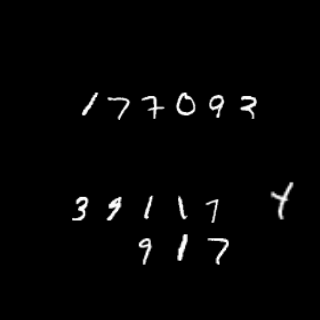 177093
39117 4
917